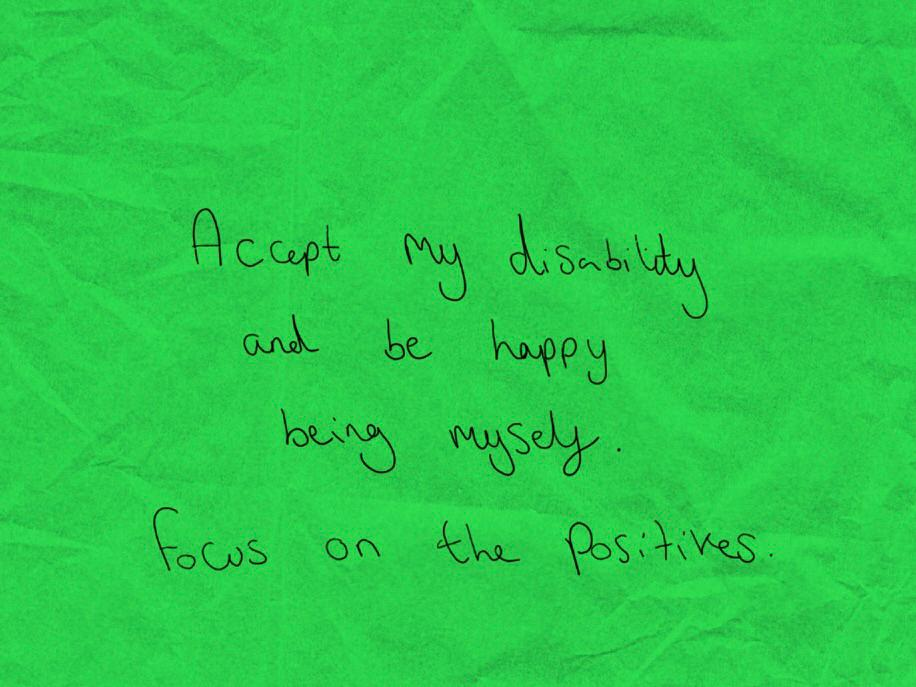 Accept my disability
and be happy
being myself.
Focus on the Positives.